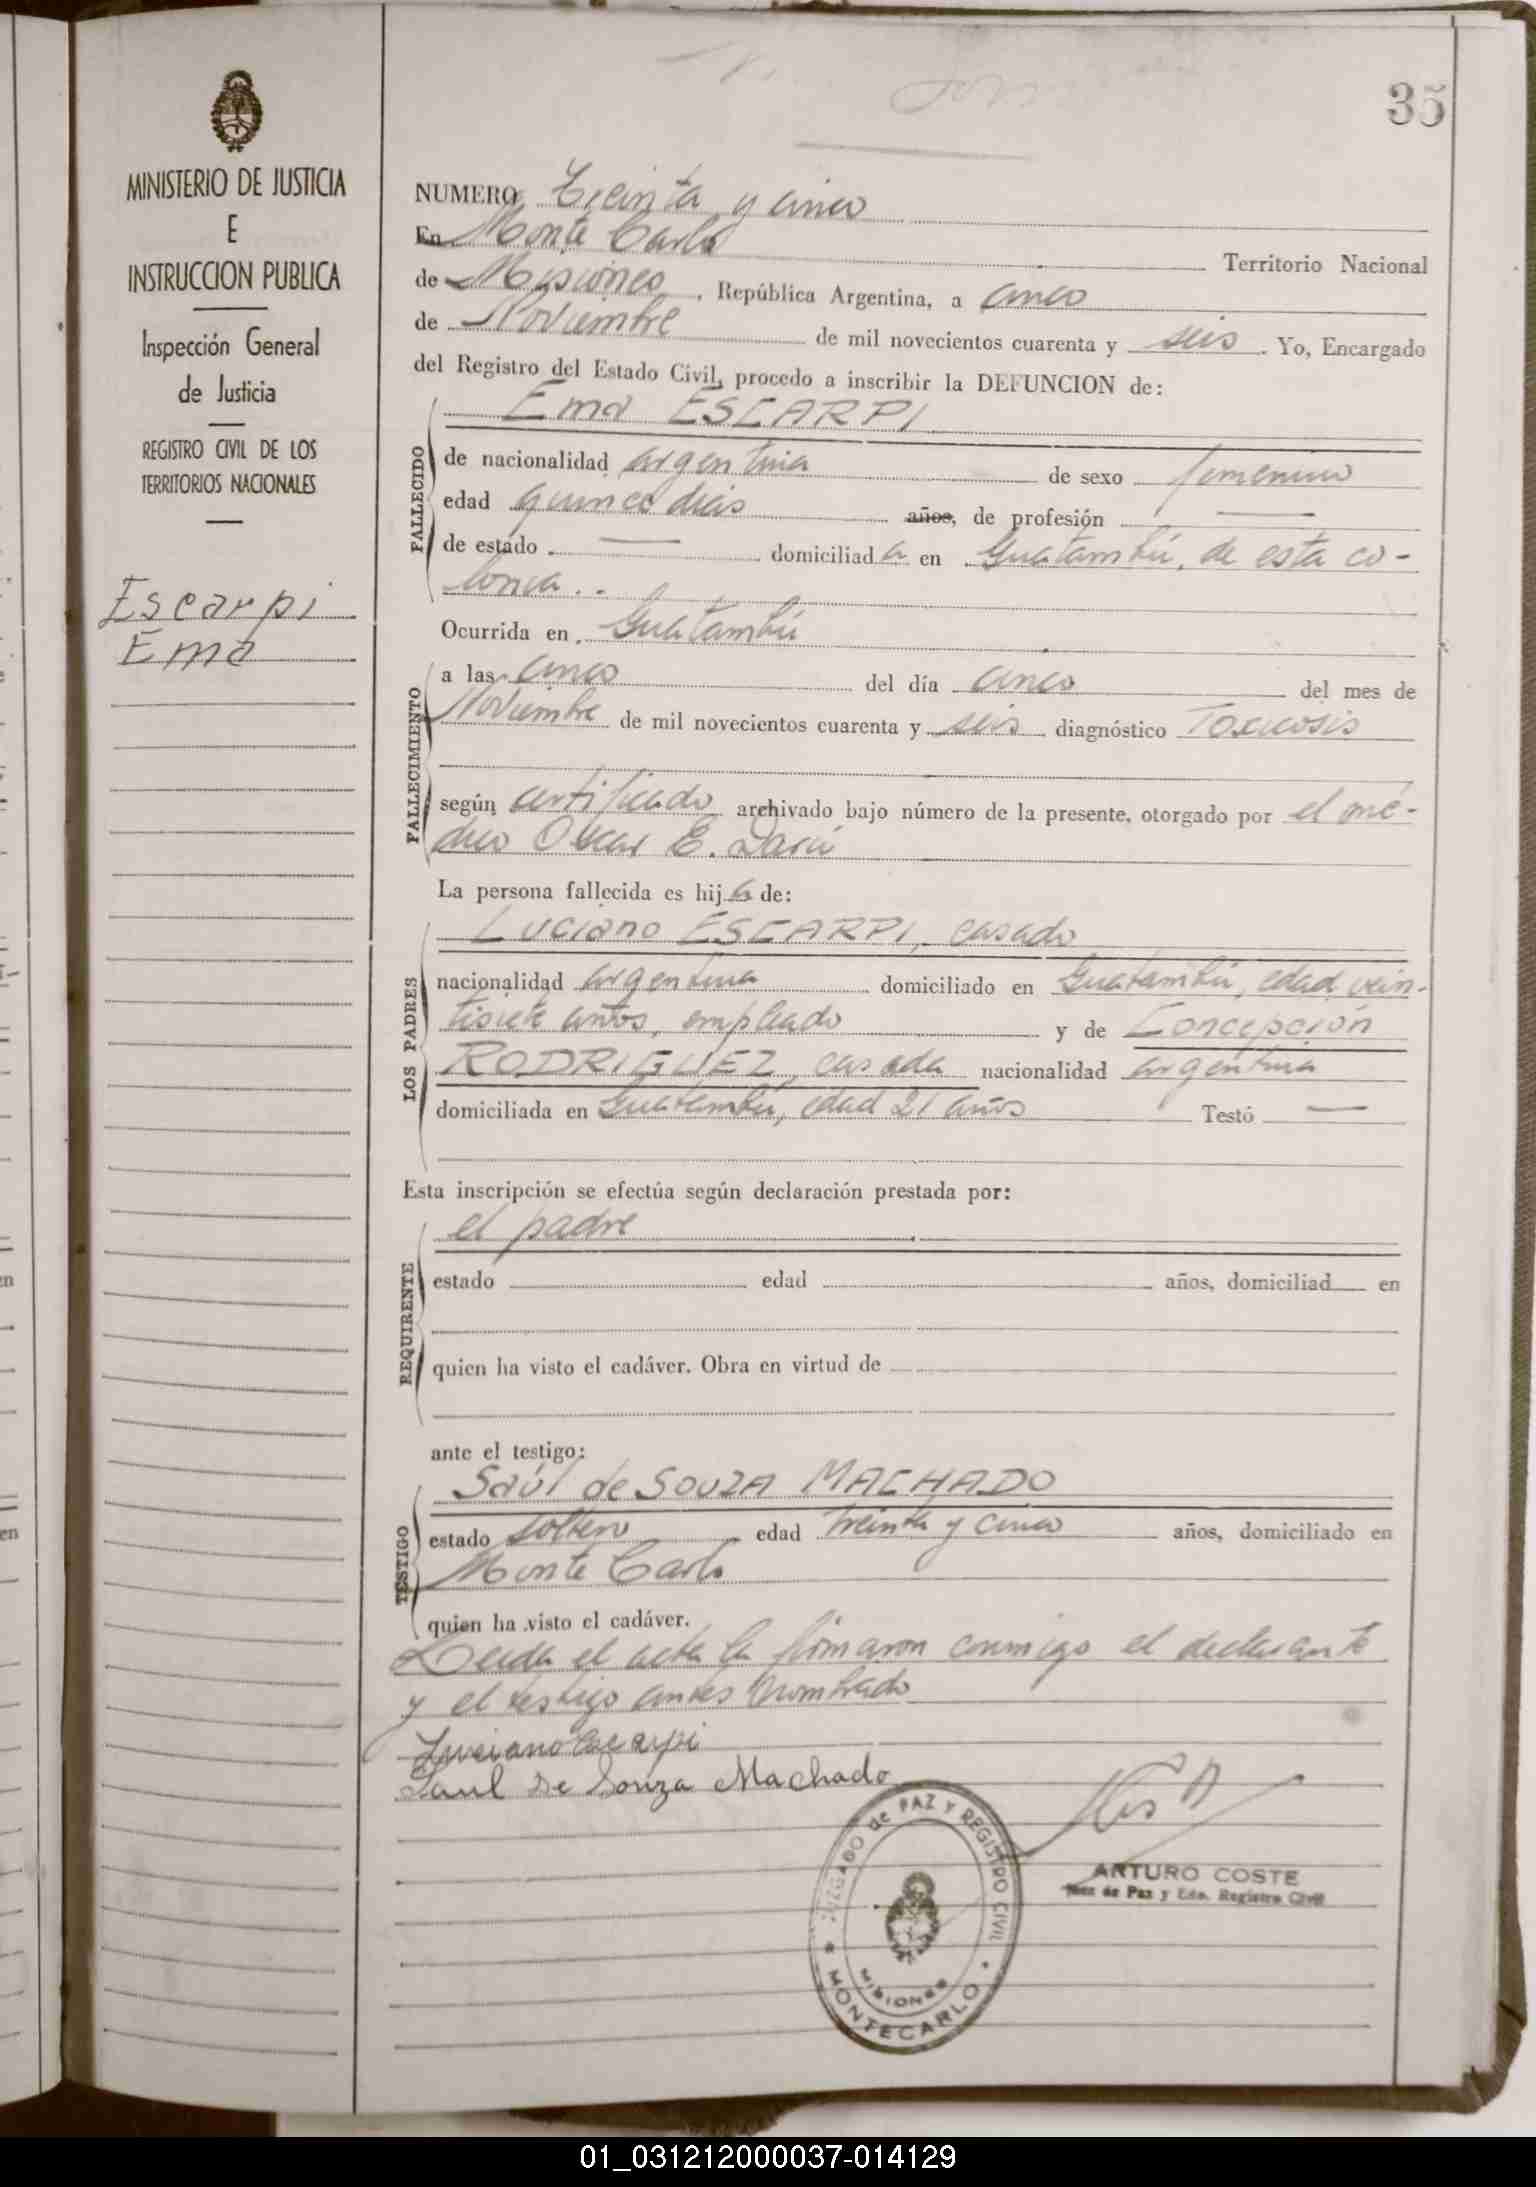 35
MINISTERIO DE JUSTICIA
E
INSTRUCCION PUBLICA
Inspección General
de Justicia
REGISTRO CIVIL DE LOS
TERRITORIOS NACIONALES
Escarpi
Ema
NUMERO Treinta y cinco
En Monte Carlo Territorio Nacional
de Misiones, República Argentina, a cinco
de Noviembre de mil novecientos cuarenta y seis. Yo, Encargado
del Registro del Estado Civil, procedo a inscribir la DEFUNCION de:
Ema ESCARPI
FALLECIDO
de nacionalidad argentina de sexo femenino
edad quince dias años, de profesión —
de estado — domiciliada en Guatambú, de esta co-
lonia..
Ocurrida en Guatambú
FALLECIMIENTO
a las cinco del día cinco del mes de
Noviembre de mil novecientos cuarenta y seis diagnóstico Toxicosis
según certificado archivado bajo número de la presente, otorgado por el mé-
dico Oscar E. Darú
La persona fallecida es hija de:
LOS PADRES
Luciano ESCARPI, casado
nacionalidad argentina domiciliado en Guatambú, edad vein-
tisiete años, empleado y de Concepción
RODRIGUEZ, casada nacionalidad argentina
domiciliada en Guatambú, edad 21 años Testó —
Esta inscripción se efectúa según declaración prestada por:
REQUIRENTE
el padre
estado edad años, domiciliad en
quien ha visto el cadáver. Obra en virtud de
ante el testigo:
TESTIGO
Saúl de SOUZA MACHADO
estado soltero edad treinta y cinco años, domiciliado en
Monte Carlo
quien ha visto el cadáver.
Leida el acta la firmaron conmigo el declarante
y el testigo antes nombrado
Luciano Escarpi
Saul De Souza Machado
JUZGADO de PAZ Y REGISTRO CIVIL
MISIONES
* MONTECARLO *
ARTURO COSTE
Juez de Paz y Edo. Registro Civil
01_031212000037-014129